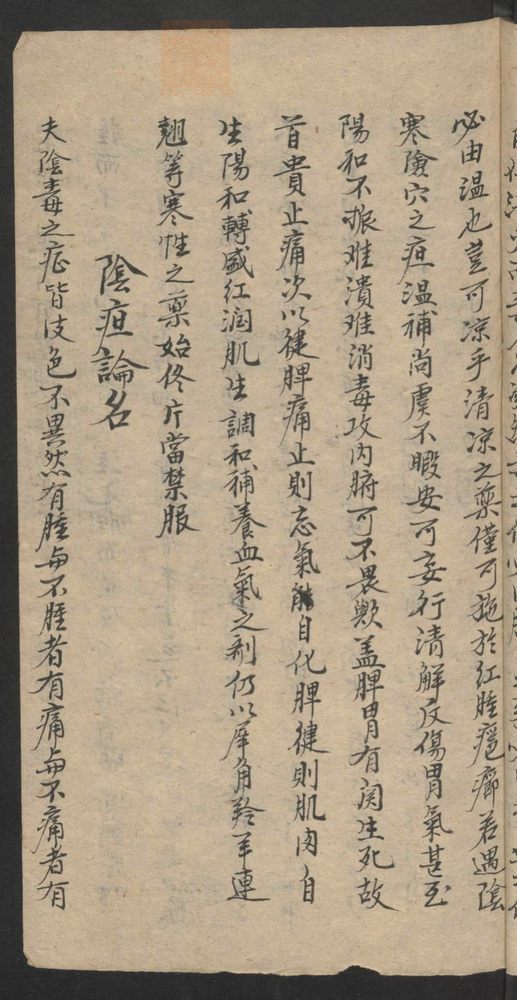 必由温也豈可凉乎清凉之藥僅可施於紅腫癰癤若遇陰
寒險穴之疽温補尚虞不暇安可妄行清解反傷胃氣甚至
陽和不振难潰难消毒攻内腑可不畏歟盖脾胃有関生死故
首貴止痛次以健脾痛止則忘氣能自化脾健則肌肉自
生陽和轉盛紅润肌生調和補養血氣之剤仍以犀角羚羊連
翹等寒性之藥始终片當禁服
陰疽論名
夫陰毒之症皆皮色不異然有腫与不腫者有痛与不痛者有